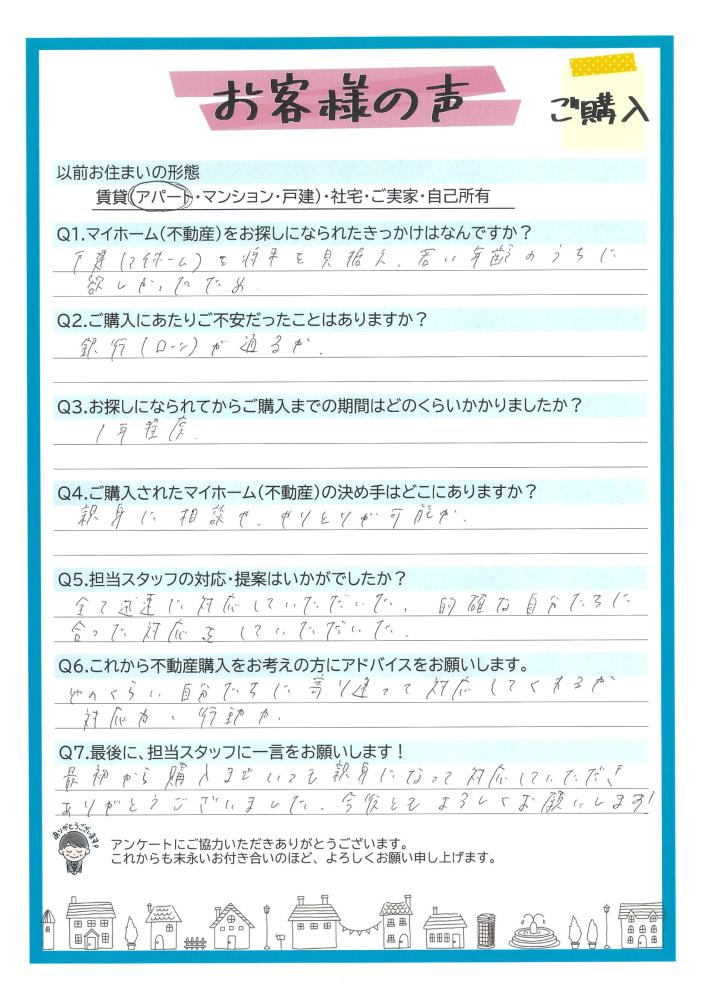 お客様の声
ご購入
以前お住まいの形態
賃貸(アパート・マンション・戸建)・社宅・ご実家・自己所有
Q1.マイホーム(不動産)をお探しになられたきっかけはなんですか？
戸建(マイホーム)を将来を見据え、若い年齢のうちに
欲しかったため.
Q2.ご購入にあたりご不安だったことはありますか？
銀行(ローン)が通るか.
Q3.お探しになられてからご購入までの期間はどのくらいかかりましたか？
1年程度.
Q4.ご購入されたマイホーム(不動産)の決め手はどこにありますか？
親身に相談や、やりとりが可能か.
Q5.担当スタッフの対応・提案はいかがでしたか？
全て迅速に対応していただいた。的確な自分たちに
合った対応をしていただいた.
Q6.これから不動産購入をお考えの方にアドバイスをお願いします。
どのくらい自分たちに寄り添って対応してくれるか
対応力・行動力.
Q7.最後に、担当スタッフに一言をお願いします！
最初から購入までいつも親身になって対応していただき
ありがとうございました。今後ともよろしくお願いします!
ありがとうございます。
アンケートにご協力いただきありがとうございます。
これからも末永いお付き合いのほど、よろしくお願い申し上げます。